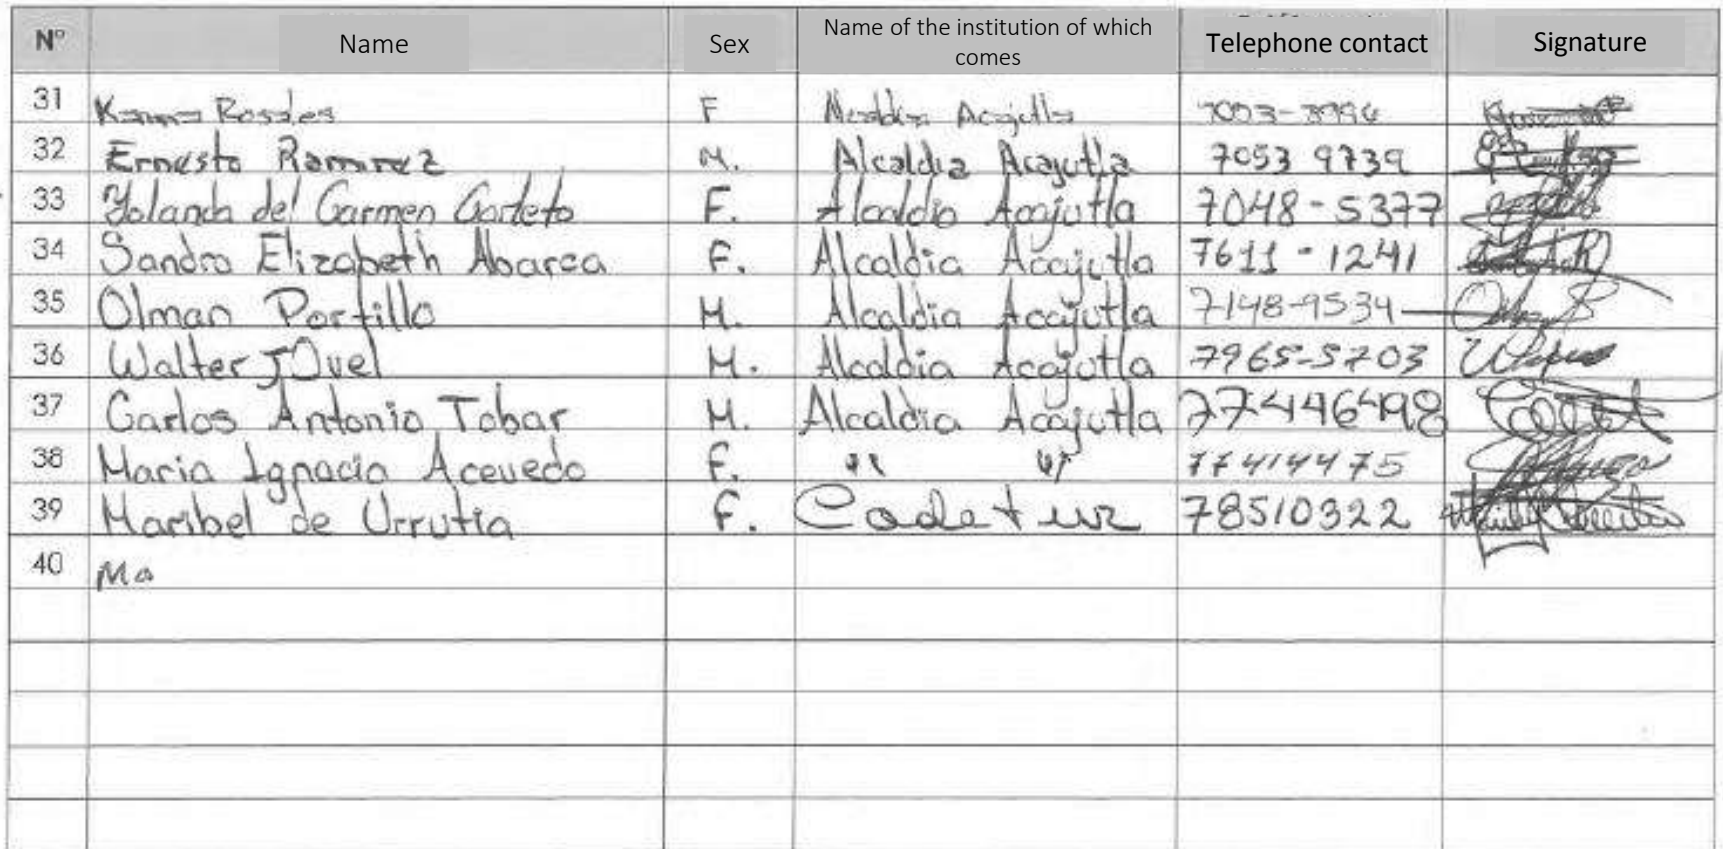 N° Name Sex Name of the institution of which comes Telephone contact Signature
31 Rosales F Acajutla
32 Ernesto Ramirez M. Alcaldia Acajutla 7053 9739
33 Yolanda del Carmen F. Alcaldia Acajutla 7048-5377
34 Sandra Elizabeth Abarca F. Alcaldia Acajutla 7611-1241
35 Olman Portillo M. Alcaldia Acajutla 7148-9534
36 Walter M. Alcaldia Acajutla 7965-5703
37 Carlos Antonio Tobar M. Alcaldia Acajutla 77446498
38 Maria Ignacia Acevedo F. " " 77414475
39 Maribel de Urrutia F. Cadetur 78510322
40 Ma